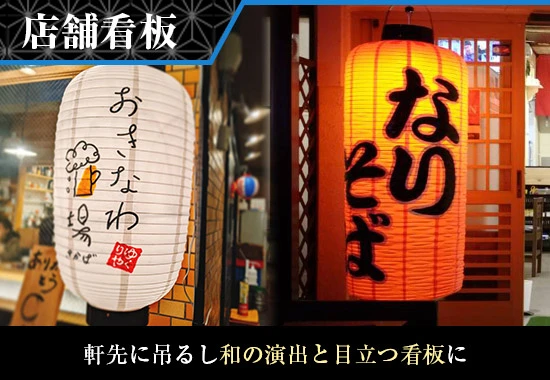 店舗看板
おきなわ
酒場
さかば
ゆくりや
ありがとう
なり
そば
軒先に吊るし和の演出と目立つ看板に